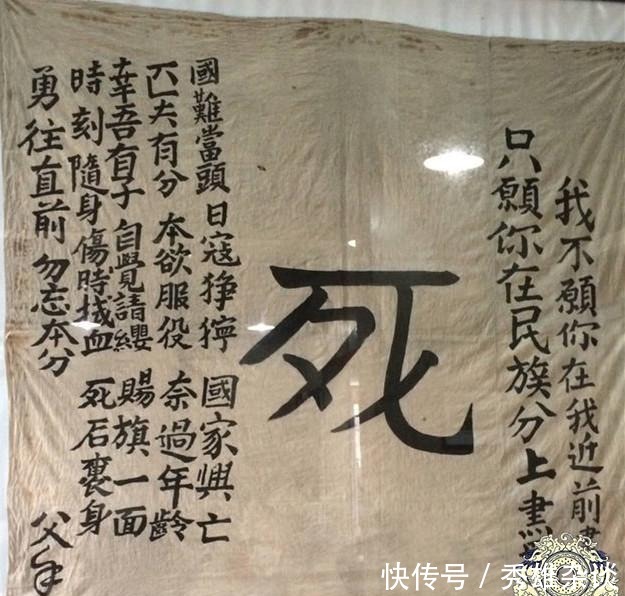 我不願你在我近前
只願你在民族分上
死
國難當頭 日寇猙獰 國家興亡
匹夫有分 本欲服役 奈過年齡
幸吾有子 自覺請纓 賜旗一面
時刻隨身 傷時拭血 死后裹身
勇往直前 勿忘本分
父手
快传号 / 秀雄杂谈